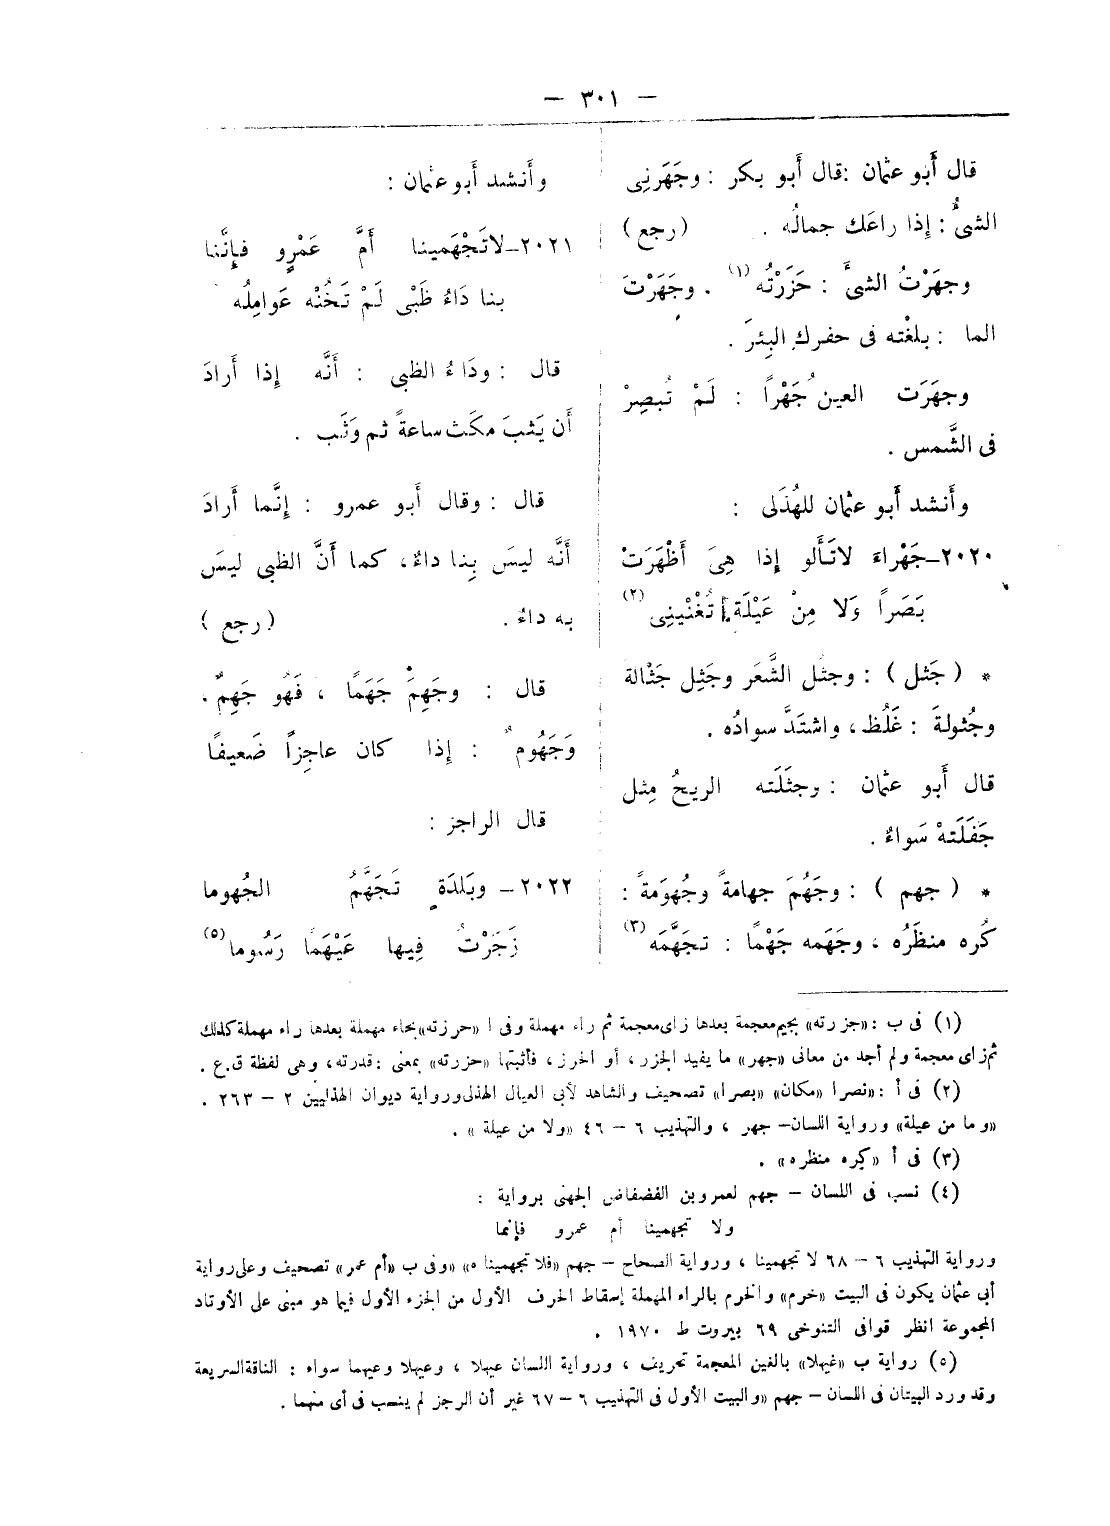 — ٣٠١ —
قال أَبو عثمان : قال أَبو بكر : وجَهَرنِى
الشىُّ : إِذا راعَك جمالُه . (رجع)
وجهَرْتُ الشىَّ : حَزَرْتُه (١) . وجَهَرْتَ
الما : بلغْته فى حفرك البِئرَ .
وجهَرَت العين جَهْراً : لَمْ تُبصِرْ
فى الشَّمس .
وأَنشد أَبو عثمان للهُذَلى :
٢٠٢٠ــ جَهْراءَ لاتَأَلو إِذا هِىَ أَظْهَرَتْ
بَصَراً وَلا مِنْ عَيْلَة تُغْنِينِى (٢)
* ( جَثل ) : وجثُل الشَّعَر وجَثِل جَثْالة
وجُثولةَ : غَلُظ ، واشتَدَّ سوادُه .
قال أَبو عثمان : وجثَلَته الريحُ مِثل
جَفَلَتهْ سَواءٌ .
* ( جهم ) : وجَهُمَ جهامةً وجُهوَمةً :
كُره منظَرُه ، وجَهَمه جَهْمًا : تجهَّمَه (٣)
وأَنشد أَبو عثمان :
٢٠٢١ــ لاتَجْهَمينا أَمَّ عَمْرٍو فإِنَّنا
بنا دَاءُ ظَبْىٍ لَمْ تَخُنْه عَوامِلُه
قال : ودَاءُ الظبى : أَنَّه إِذا أَرادَ
أَن يَثبَ مكَث ساعةً ثم وَثَب .
قال : وقال أَبو عمرو : إِنَّما أَرادَ
أَنَّه ليسَ بِنا داءٌ ، كما أَنَّ الظبى ليسَ
به داءٌ . (رجع)
قال : وجَهِمَ جَهَمًا ، فَهُو جَهِمٌ .
وَجَهُومٌ : إِذا كان عاجِزاً ضَعيفًا
قال الراجز :
٢٠٢٢ــ وبَلدَةٍ تَجَهَّمُ الجُهوما
زَجَرْتُ فِيها عَيْهَمًا رَسُوما (٥)
(١) فى ب : «جزرته» بجيم معجمة بعدها زاى معجمة ثم راء مهملة وفى ا «حرزته» بحاء مهملة بعدها راء مهملة كذلك
ثم زاى معجمة ولم أجد من معانى «جهر» ما يفيد الجزر ، أو الحرز ، فأثبتها «حزرته» بمعنى : قدرته ، وهى لفظة ق.ع .
(٢) فى أ : «نصرا «مكان» «بصرا» تصحيف والشاهد لأبى العيال الهذلى ورواية ديوان الهذليين ٢ – ٢٦٣ .
«وما من عيلة» ورواية اللسان– جهر ، والتهذيب ٦ – ٤٦ «ولا من عيلة » .
(٣) فى أ «كره منظره» .
(٤) نسب فى اللسان – جهم لعمرو بن الفضفاض الجهنى برواية :
ولا تجهمينا أم عمرو فإنما
ورواية التهذيب ٦ – ٦٨ لا تجهمينا ، ورواية الصحاح – جهم «فلا تجهمينا ه» «وفى ب «أم عمر» تصحيف وعلى رواية
أبى عثمان يكون فى البيت «خرم» والخرم بالراء المهملة إسقاط الحرف الأول من الجزء الأول فيما هو مبنى على الأوتاد
المجموعة انظر قوافى التنوخى ٦٩ بيروت ط ١٩٧٠ .
(٥) رواية ب «غيهلا» بالغين المعجمة تحريف ، ورواية اللسان عيهلا ، وعيهلا وعيهما سواء : الناقة السريعة
وقد ورد البيتان فى اللسان – جهم «والبيت الأول فى التهذيب ٦ – ٦٧ غير أن الرجز لم ينسب فى أى منهما .